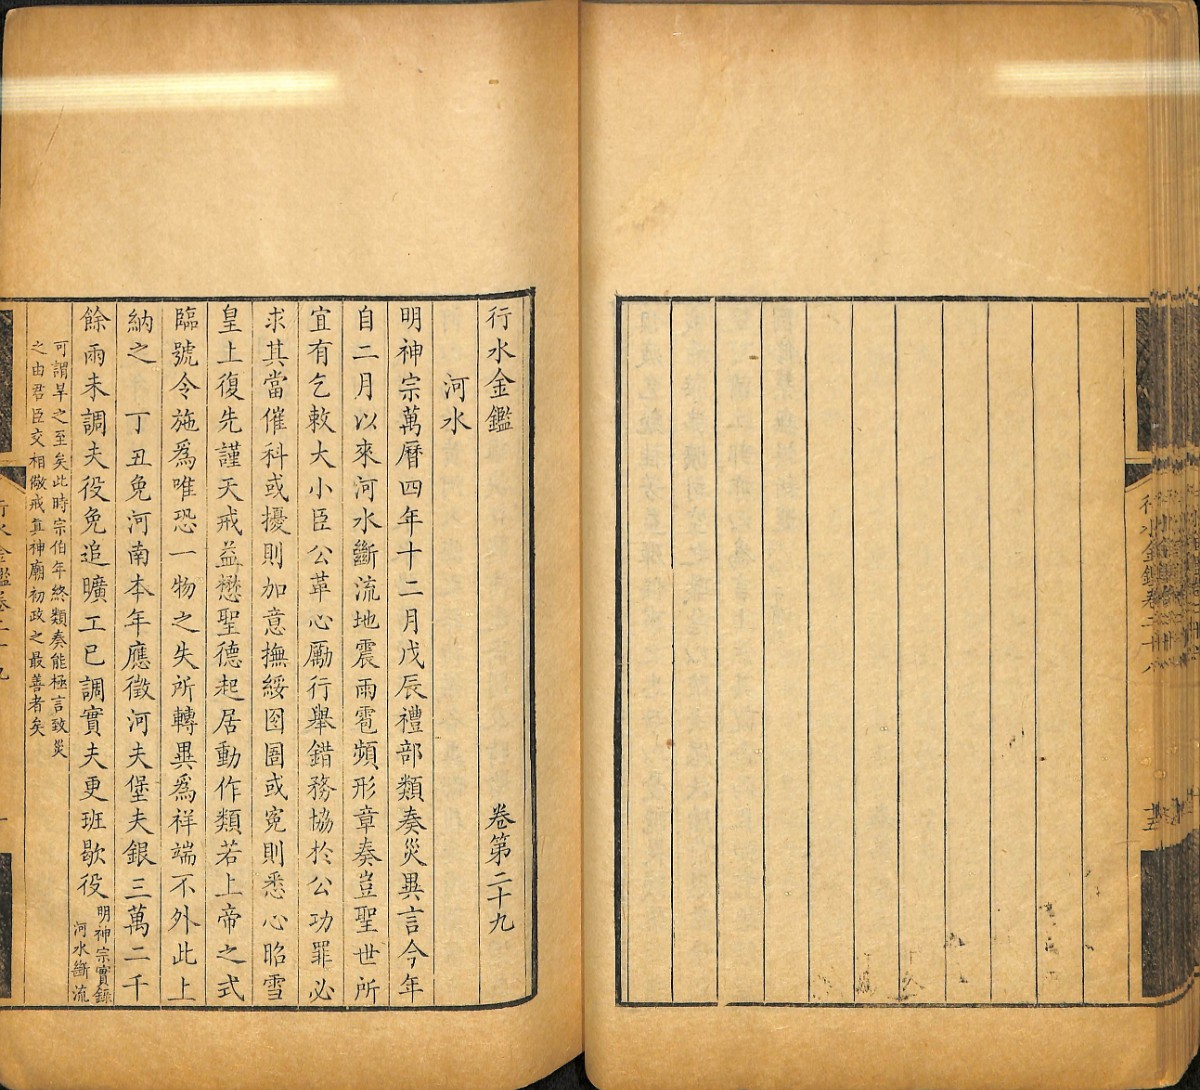 行水金鑑卷二十八
十五
行水金鑑 卷第二十九
河水
明神宗萬曆四年十二月戊辰禮部類奏災異言今年
自二月以來河水斷流地震雨雹頻形章奏豈聖世所
宜有乞敕大小臣公革心勵行舉錯務協於公功罪必
求其當催科或擾則加意撫綏囹圄或寃則悉心昭雪
皇上復先謹天戒益懋聖德起居動作類若上帝之式
臨號令施爲唯恐一物之失所轉異爲祥端不外此上
納之 丁丑免河南本年應徵河夫堡夫銀三萬二千
餘兩未調夫役免追曠工已調實夫更班歇役明神宗實錄
河水斷流
可謂旱之至矣此時宗伯年終類奏能極言致災
之由君臣交相儆戒眞神廟初政之最善者矣
行水金鑑卷二十九
一